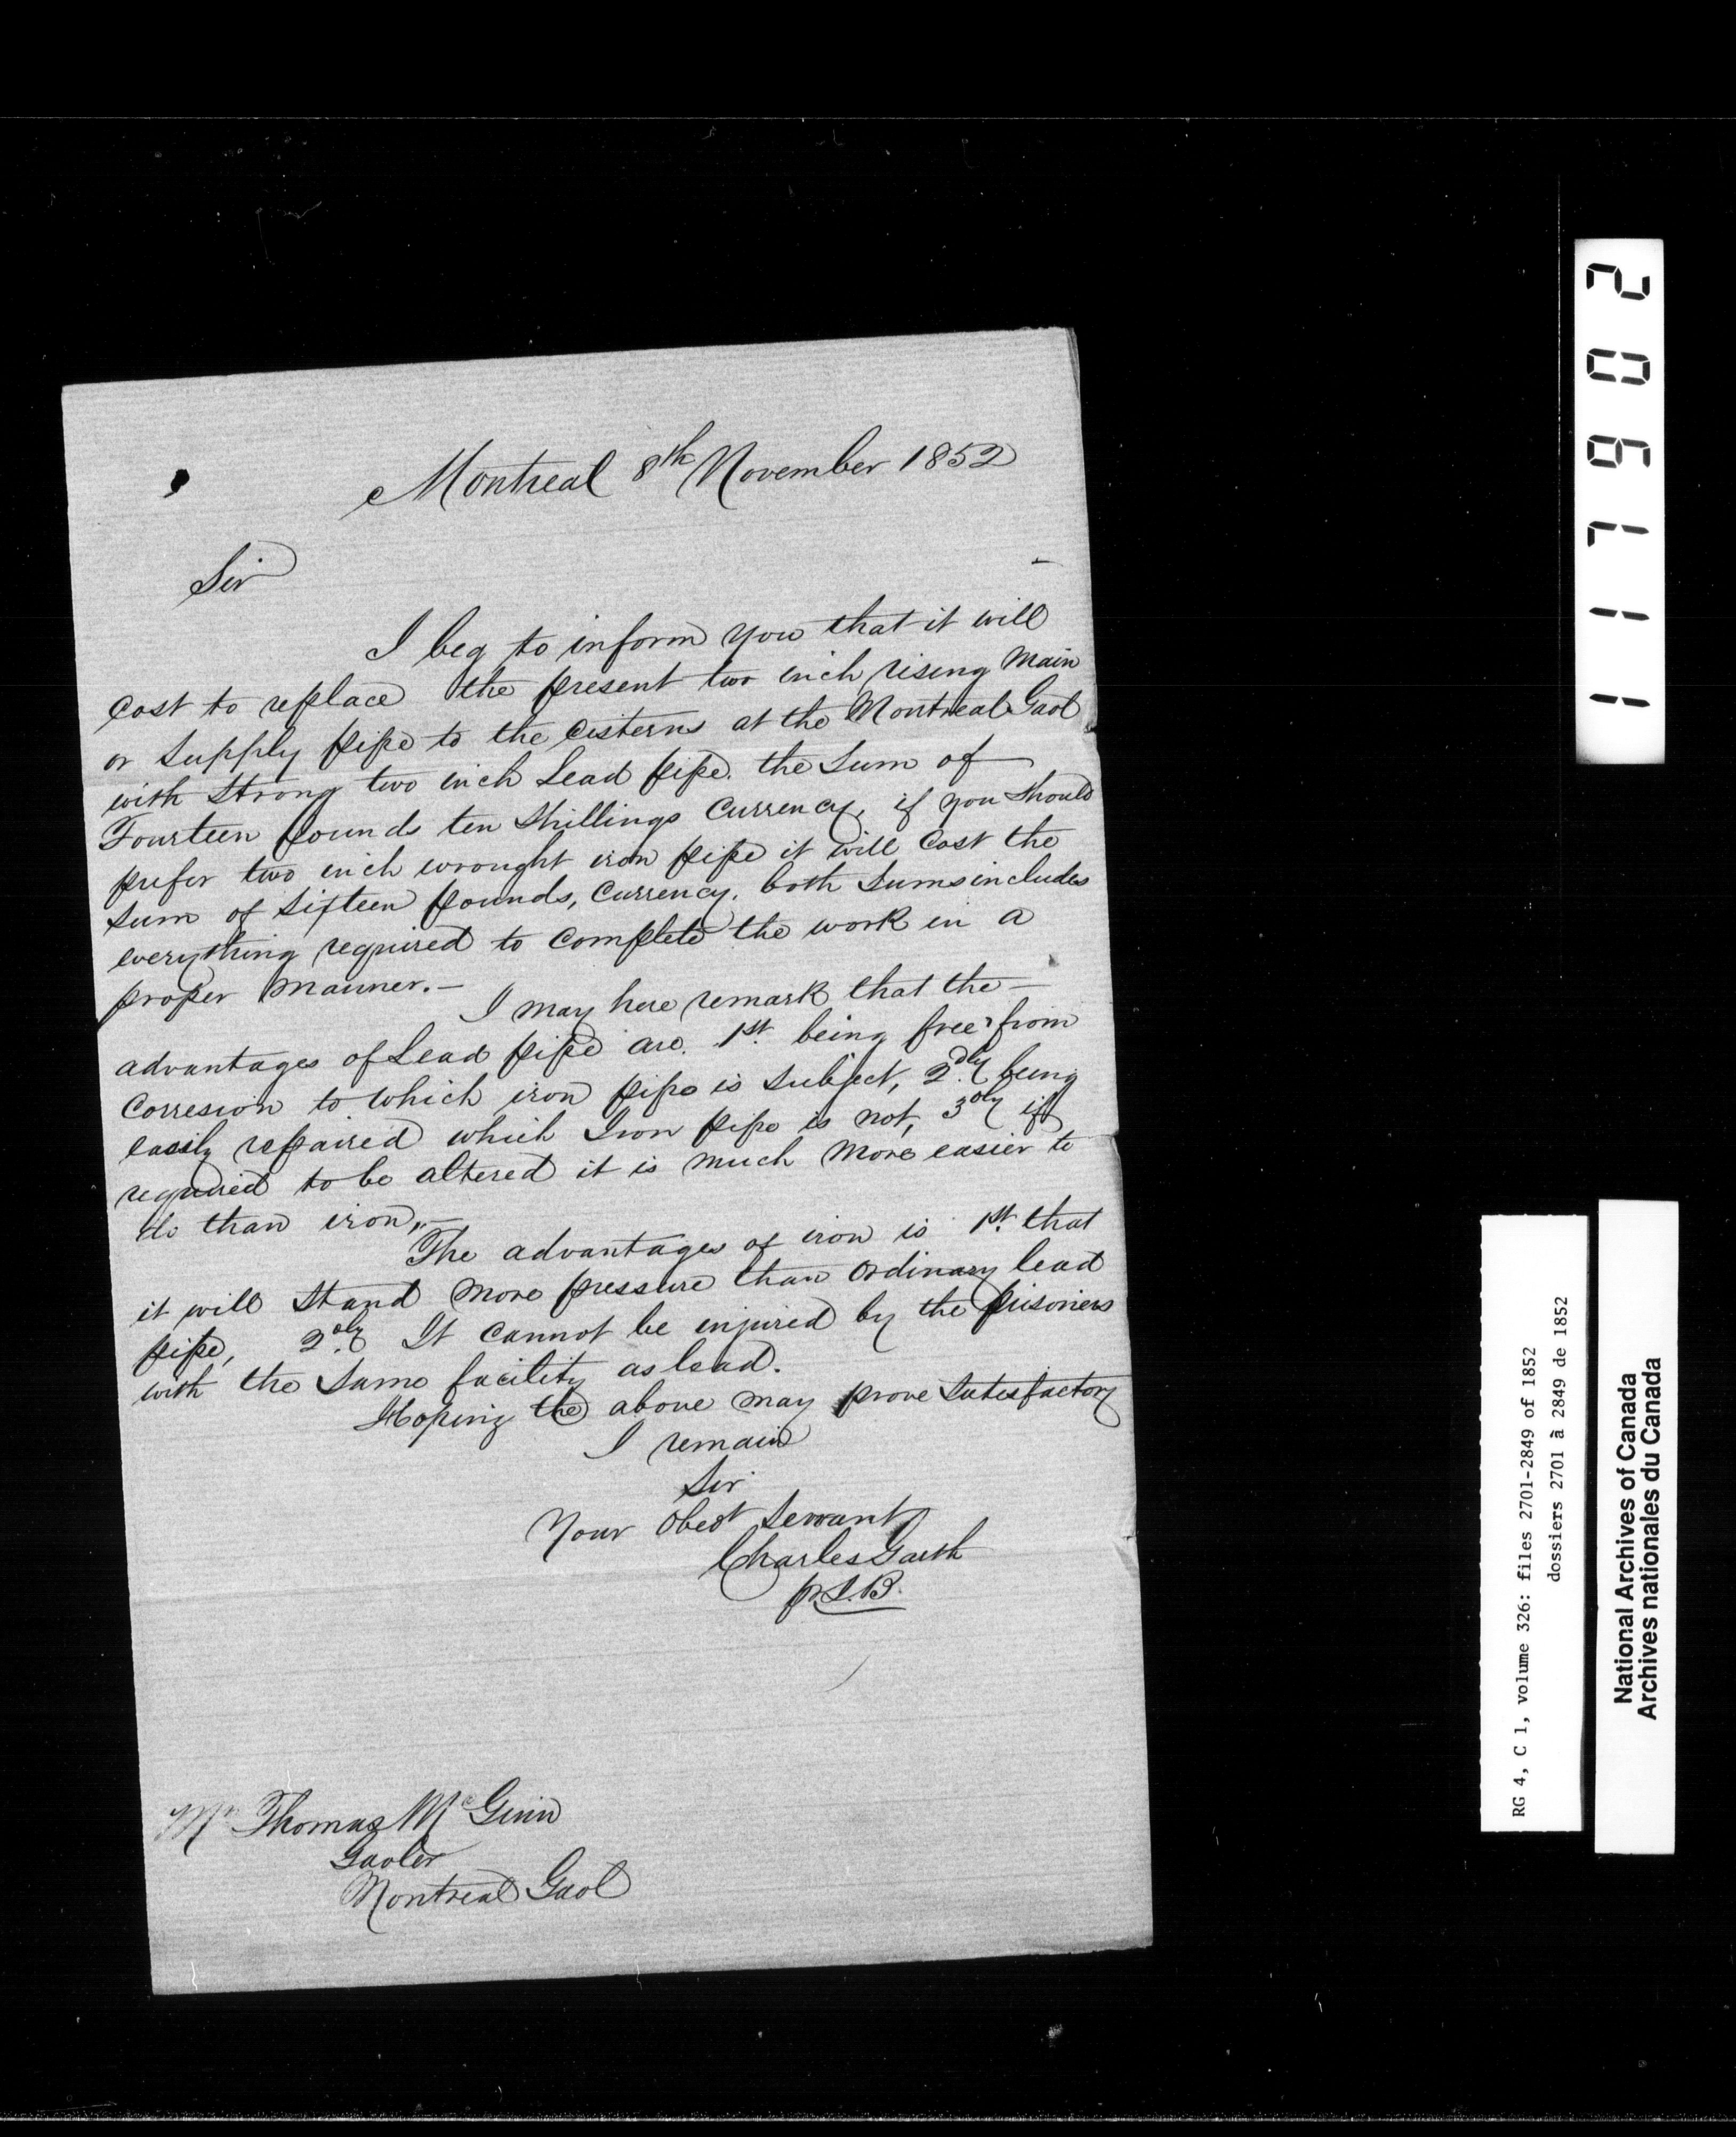 Montreal 8th November 1852
Sir
I beg to inform you that it will
cost to replace the present two inch rising main
or supply pipe to the cisterns at the Montreal Gaol
with strong two inch Lead pipe. the sum of
Fourteen pounds ten shillings Currency, if you should
prefer two inch wrought iron pipe it will cost the
sum of sixteen pounds, Currency. both sums includes
everything required to complete the work in a
proper manner. -
I may here remark that the -
advantages of Lead pipe are. 1st. being free from
Corresion to which iron pipe is subject, 2dly being
easily repaired which Iron pipe is not, 3dly if
required to be altered it is much more easier to
do than iron,, -
The advantages of iron is 1st. that
it will stand more pressure than ordinary lead
pipe, 2dly It cannot be injured by the prisoners
with the same facility as lead.
Hoping the above may prove satisfactory
I remain
Sir
Your Obedt Servant
Charles Garth
p. S. B.
Mr Thomas McGinn
Gaoler
Montreal Gaol
117902
RG 4, C 1, volume 326: files 2701-2849 of 1852
dossiers 2701 à 2849 de 1852
National Archives of Canada
Archives nationales du Canada